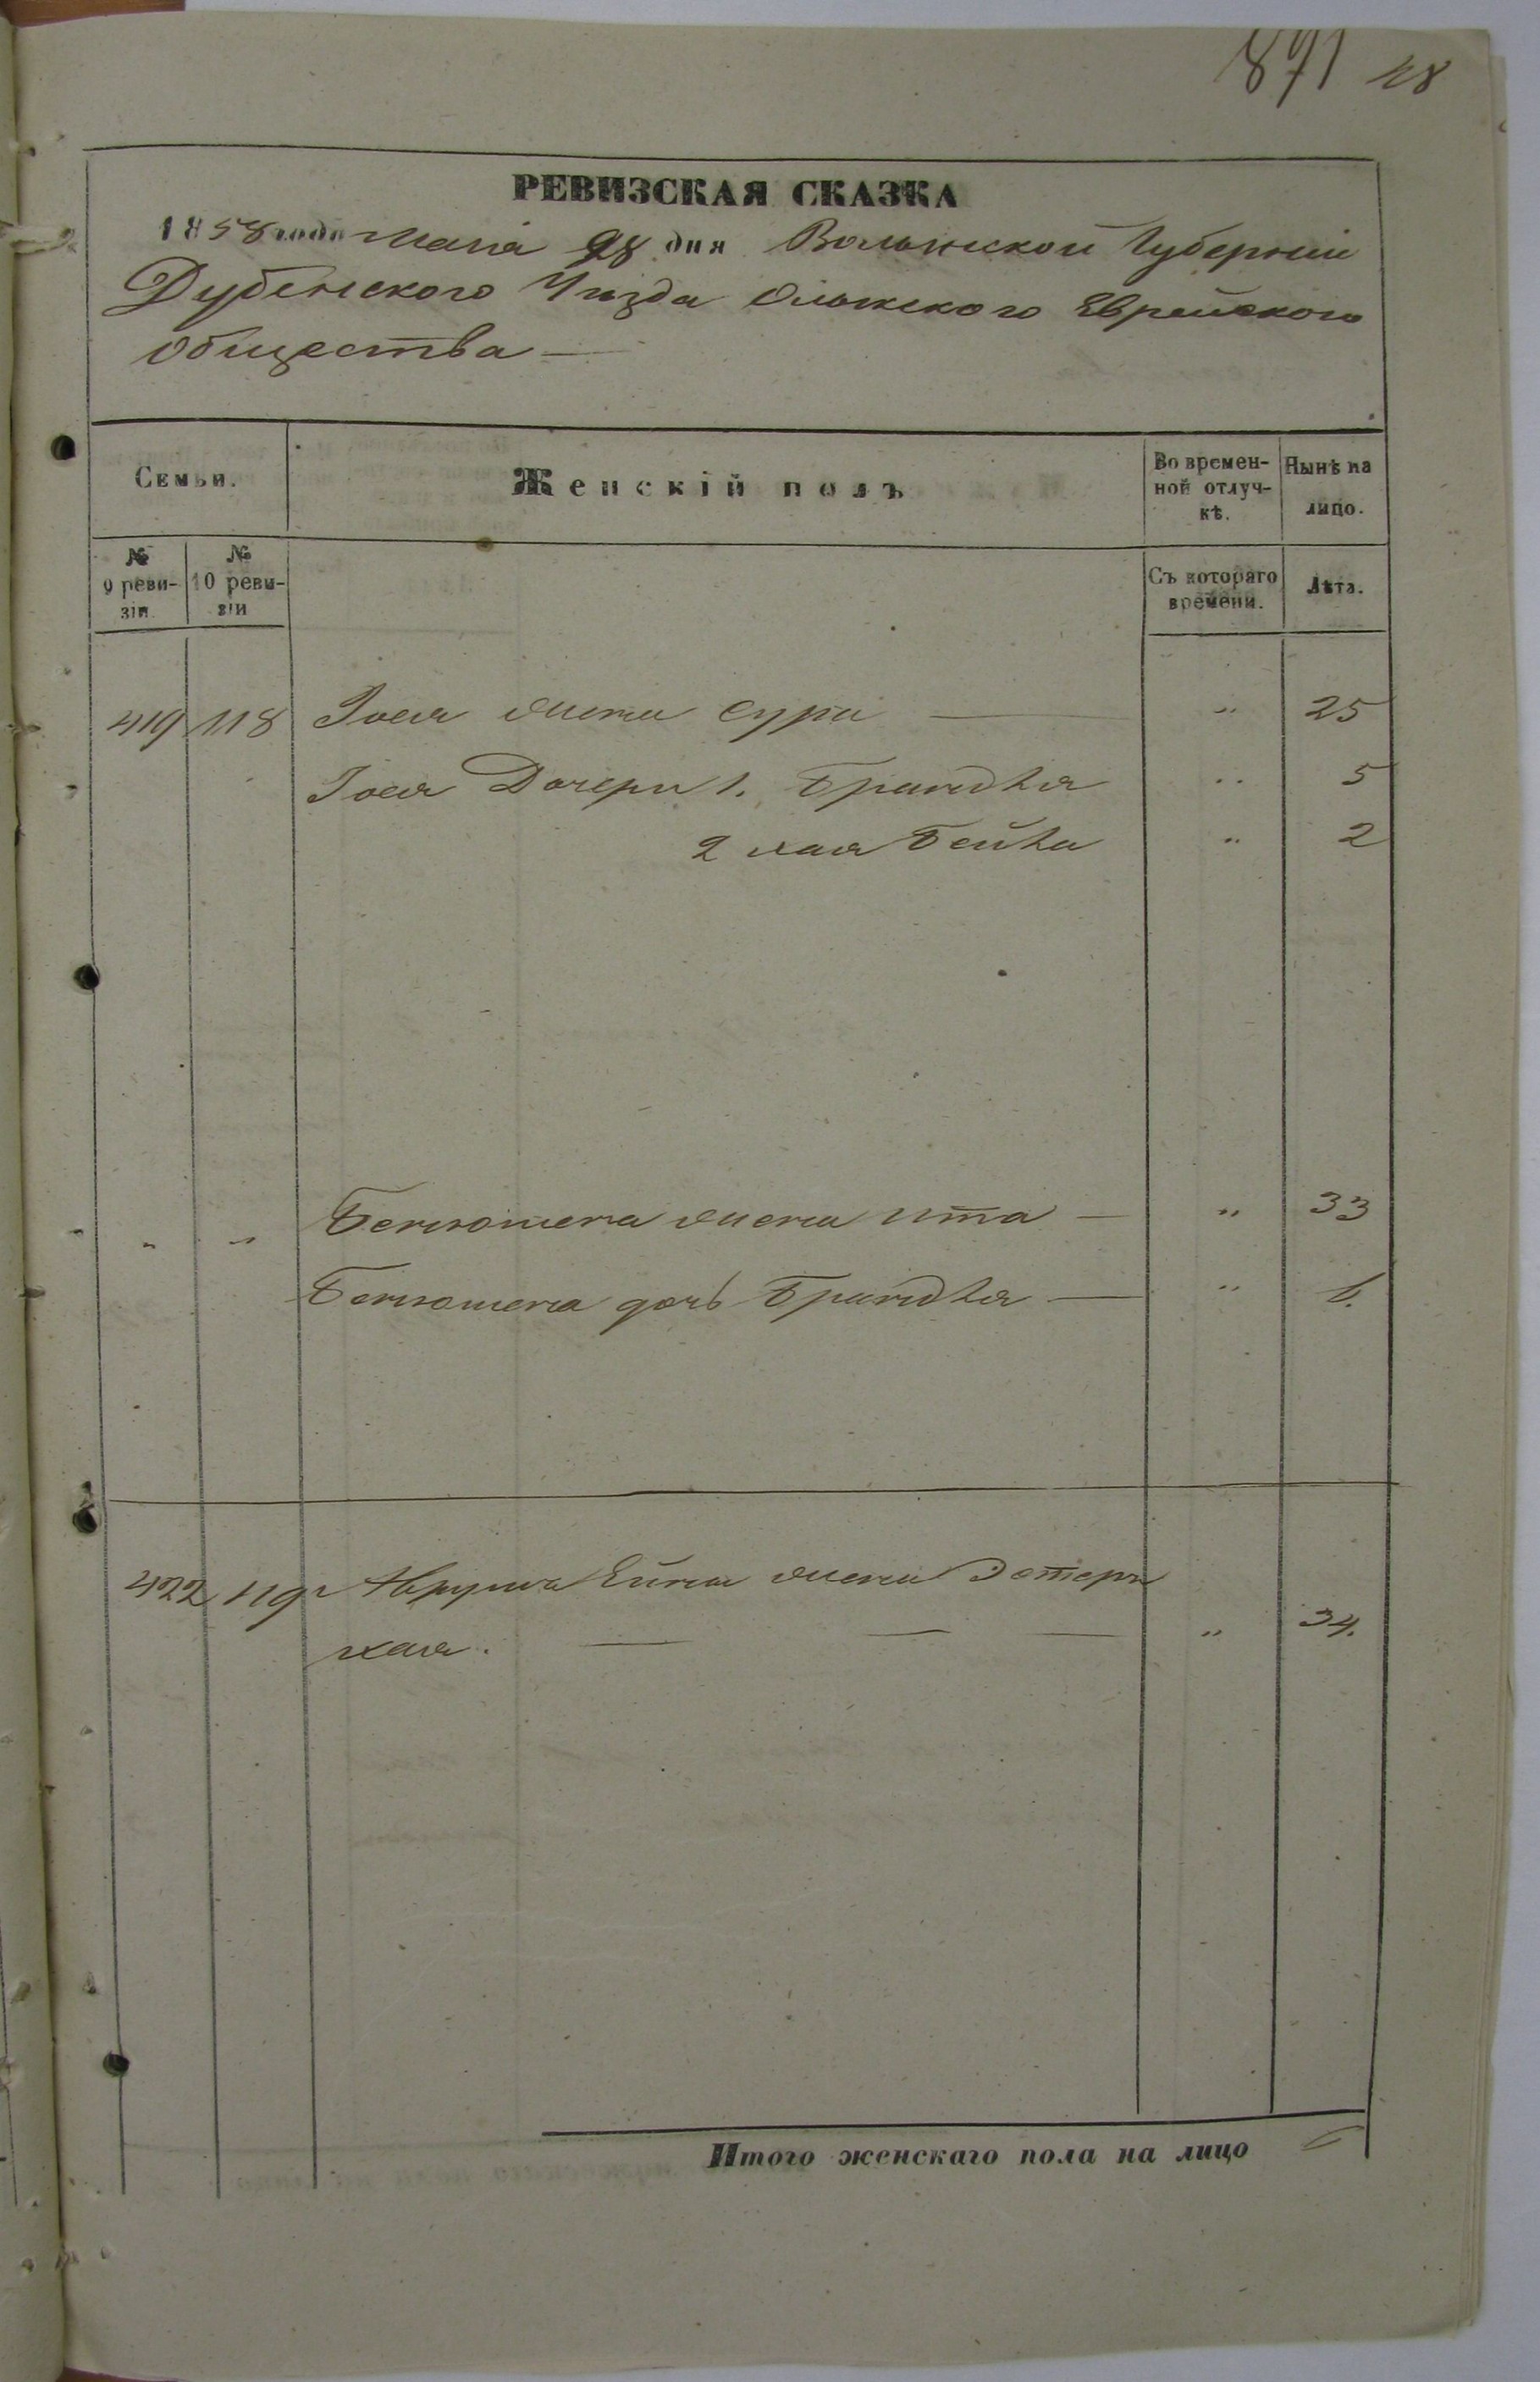 871 48
РЕВИЗСКАЯ СКАЗКА
1858 года Маія 28 дня Волынской Губерніи
Дубенского Уѣзда Еврейского
общества —
Семьи.
Женскій полъ
Во времен-
ной отлуч-
кѣ.
Нынѣ на
лицо.
№
9 реви-
зіи
№
10 реви-
зіи
Съ котораго
времени.
Лѣта.
419 118 Іося жена Сура — " 25
Іося Дочери 1. Брандля " 5
2 Хая Бейла " 2
" " Бенюмена жена Ита — " 33
Бенюмена дочь Брандля — " 6.
422 119 жена Эстеръ
Хая. — — — " 34.
Итого женскаго пола на лицо 6